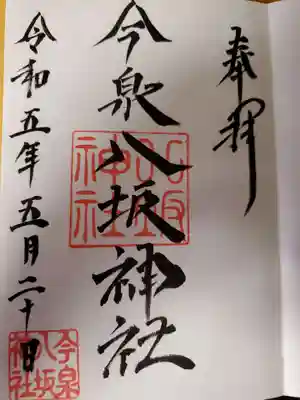 奉拝
今泉八坂神社
八坂
神社
令和五年五月二十日
今泉
八坂
神社